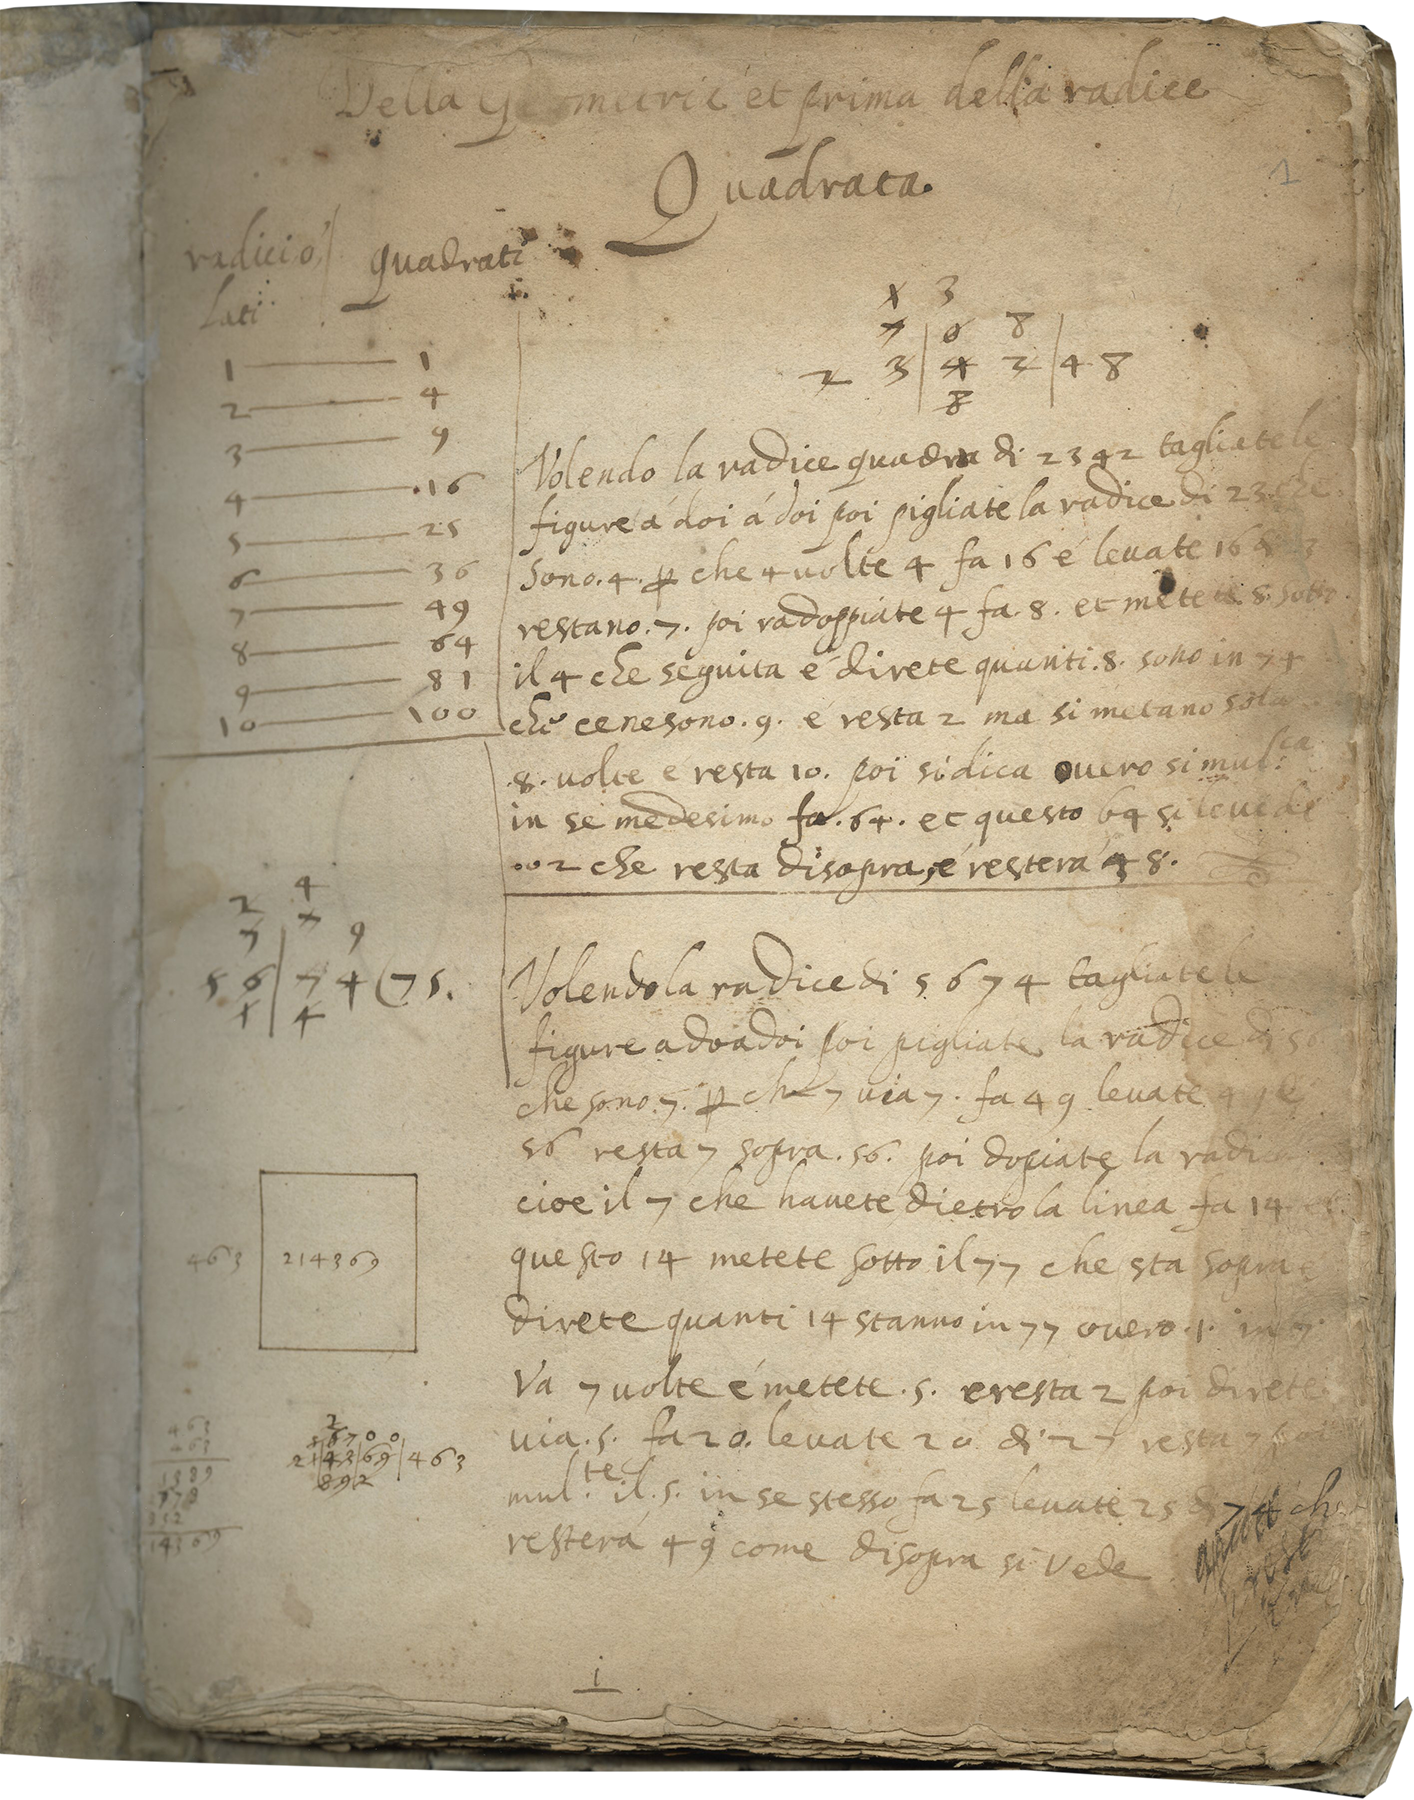 Della Geometrie et prima della radice
Quadrata
1
radici ó
Lati
Quadrati
1 1
2 4
3 9
4 16
5 25
6 36
7 49
8 64
9 81
10 100
x 3
7 6 8
2 3 | 4 2 | 4 8
8
Volendo la radice quadra di 2342 tagliate le
figure á doi á doi poi pigliate la radice di 23 che
sono .4. p che 4 uolte 4 fa 16 e leuate 16
restano .7. poi radoppiate 4 fa .8. et metete .8. sotto
il 4 che seguita e direte quanti .8. sono in 74
che ce ne sono .9. e resta 2 ma si metano sola
.8. uolte e resta 10. poi si dica ouero si mul:ca
in se medesimo fa .64. et questo 64 si leue di
002 che resta disopra, é resterá 38.
2 4
7 7 9
5 6 | 7 4 (75.
1 4
Volendo la radice di 5674 tagliate le
figure a doi a doi poi pigliate la radice di 56
che sono .7. p che 7 uia 7. fa 49 leuate 49 e
56 resta 7 sopra .56. poi dopiate la radice
cioe il 7 che hauete dietro la linea fa 14 et
questo 14 metete sotto il 77 che sta sopra e
direte quanti 14 stanno in 77 ouero .1. in 7.
Va 7 uolte é metete .5. e resta 2 poi direte
uia .5. fa 20. leuate 20 di 27 resta 7 poi
mul:te il .5. in se stesso fa 25 leuate 25 di 74 che
resterá 49 come disopra si vede
463
214369
463
463
1389
2778
214369
2
5 6 7 0 0
21|43|69|463
892
1